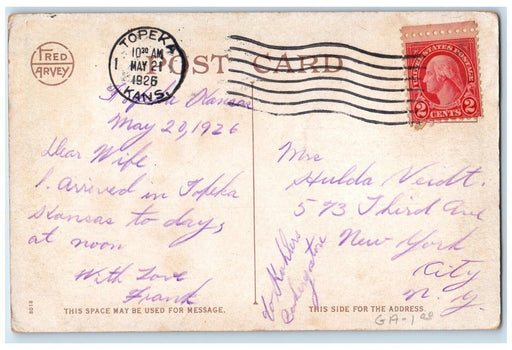 FRED
HARVEY
TOPEKA
10 30 AM
MAY 21
1926
KANS.
1
POST CARD
UNITED STATES POSTAGE
2 2
CENTS
Topeka Kansas
May 20, 1926
Dear Wife
I. arrived in Topeka
Kansas to day,
at noon
With Love
Frank
Mrs
Hulda Verdt.
573 Third Ave
New York
City
N. Y.
to Kahlers
8018
THIS SPACE MAY BE USED FOR MESSAGE.
THIS SIDE FOR THE ADDRESS.
GA-1 00